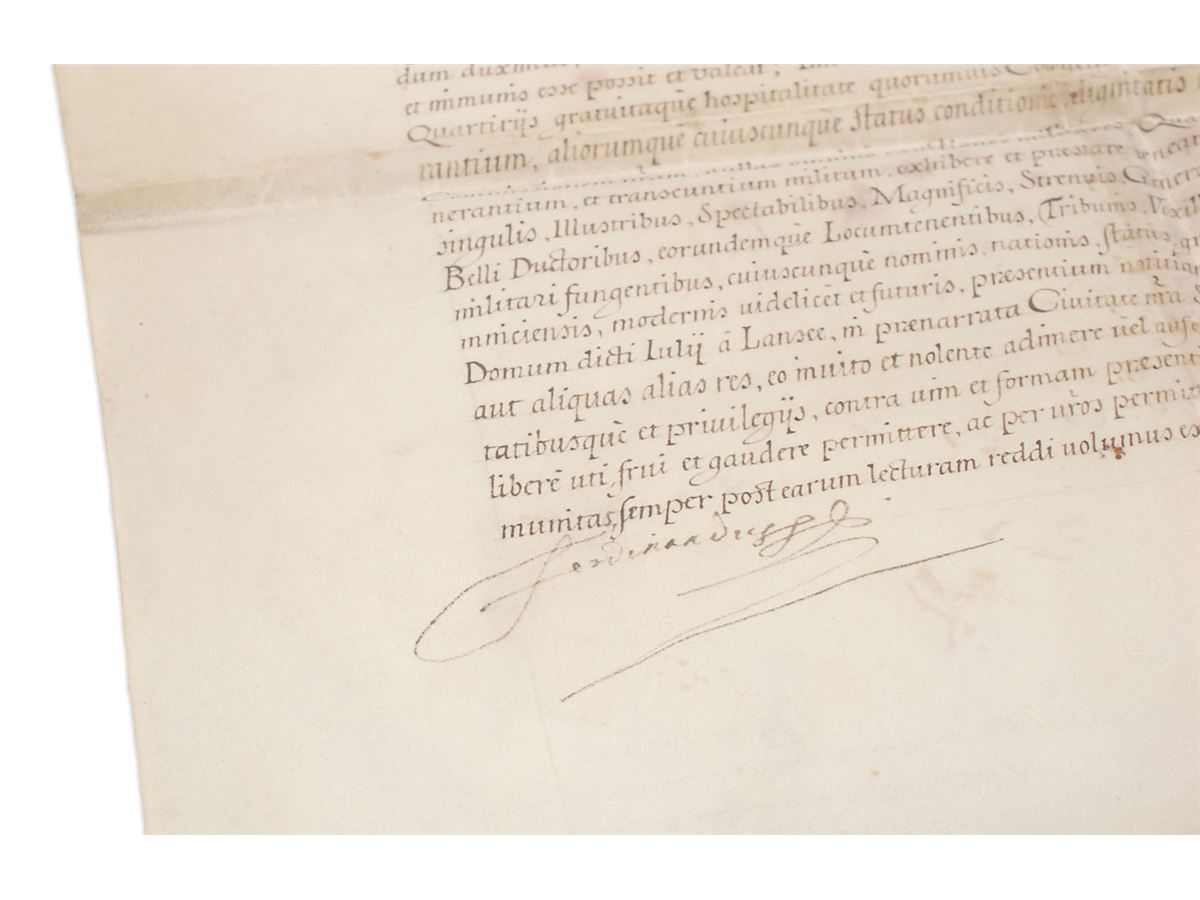 dam duximus,
et immunis esse possit et valeat,
Quartirijs gratuitaquè hospitalitate quorumuis
rantium, aliorumque cuiuscunquè status conditionis, dignitatis
nerantium, et transeuntium militum, exhibere et præstare
singulis, Illustribus, Spectabilibus, Magnificis, Strenuis,
Belli Ductoribus, eorundemquè Locumtenentibus, Tribunis,
militari fungentibus, cuiuscunquè nominis, nationis, status,
mniciensis, modernis uidelicèt et futuris, præsentium
Domum dicti Iulij à Lansee, in prænarrata Ciuitate nr̃a
aut aliquas alias res, eo inuito et nolente adimere uèl
tatibusquè et priuilegijs, contra uim et formam
liberè uti, frui et gaudere permittere, ac per ur̃os
munitas, semper post earum lecturam reddi uolumus
Ferdinandus